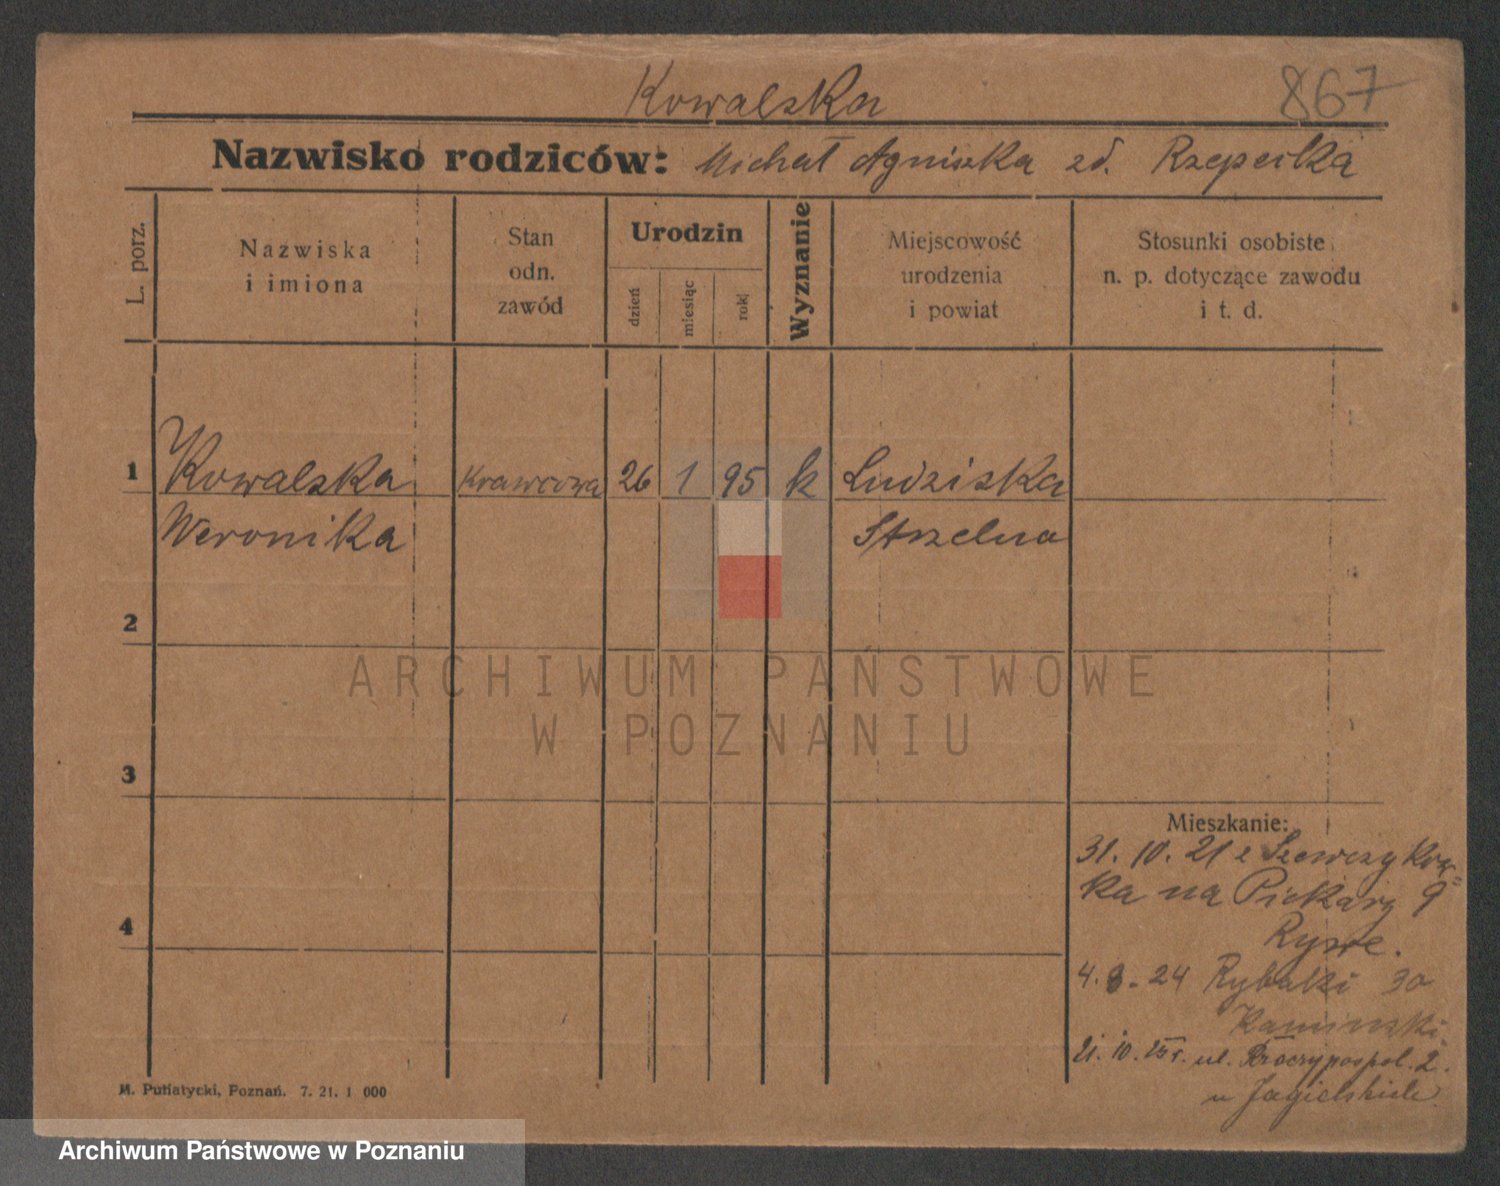 Kowalska
867
Nazwisko rodziców: Michał Agniszka zd. Rzepecka
L. porz.
Nazwiska
i imiona
Stan
odn.
zawód
Urodzin
dzień
miesiąc
rok
Wyznanie
Miejscowość
urodzenia
i powiat
Stosunki osobiste
n. p. dotyczące zawodu
i t. d.
1
Kowalska Krawcowa 26 1 95 k Ludziska
Weronika Strzelno
2
ARCHIWUM PAŃSTWOWE
W POZNANIU
3
Mieszkanie:
31. 10. 21 z
ka na Piekary 9
4
4. 8. 24 Rybaki 30
Kaminski
21. 10. 25 r. ul. Rzeczypospol. 2.
u
M. Putiatycki, Poznań. 7. 21. 1 000
Archiwum Państwowe w Poznaniu